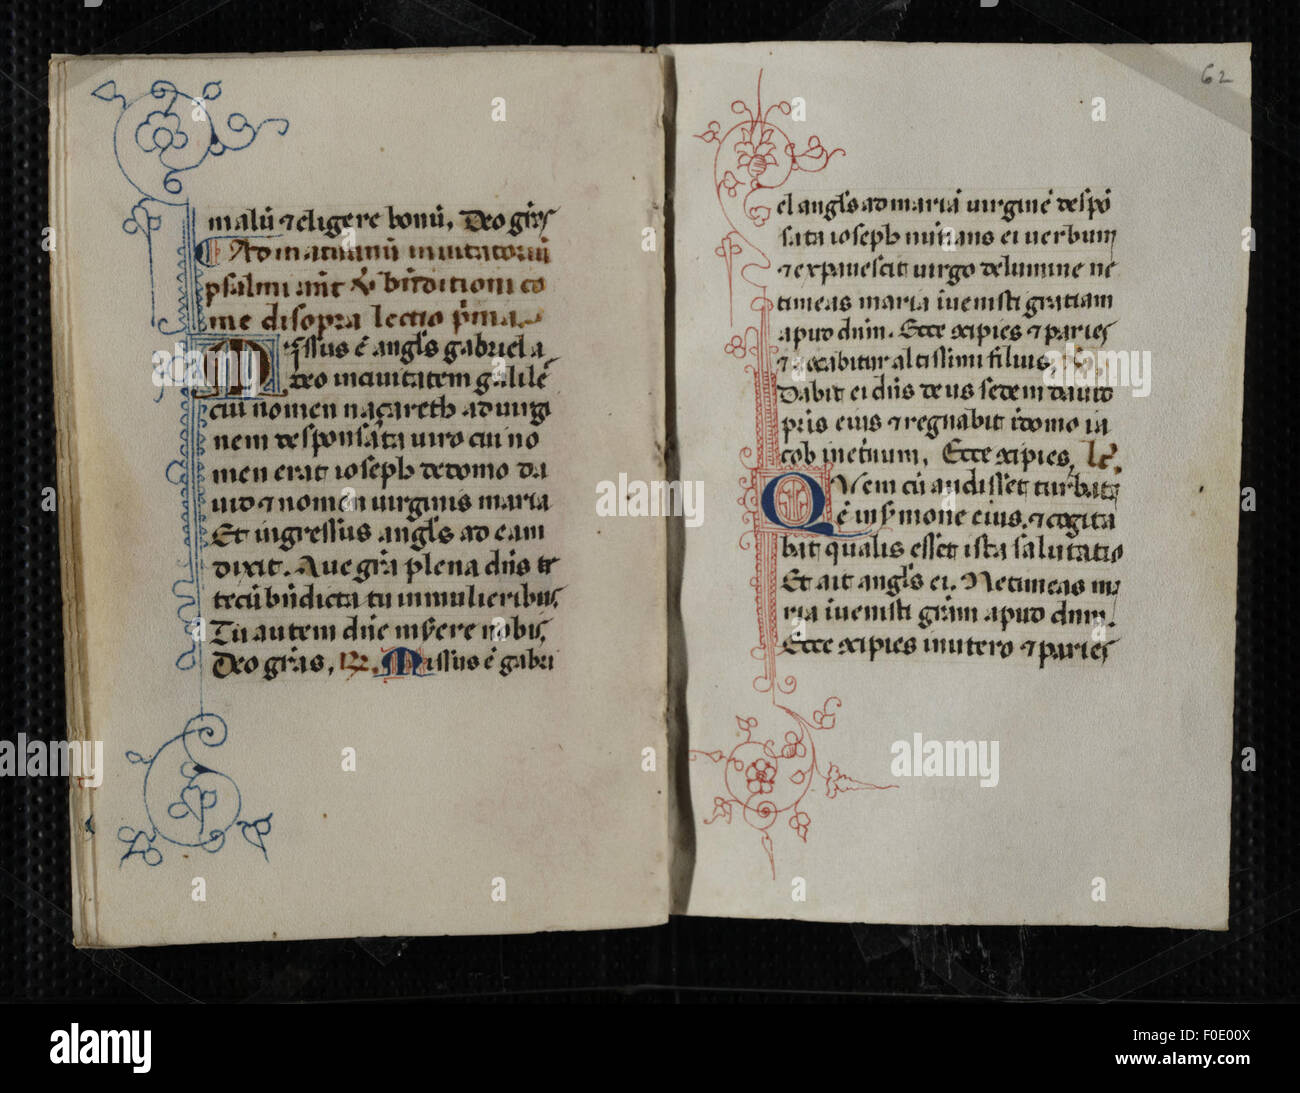 malū ⁊ eligere bonū. Deo grās
Ad matutinū inuitatoriū
psalmi ant̄ ⁊ bn̄ditioni co
me disopra lectio pͥma.
Missus ē angl̄s gabriel a
deo in ciuitatem galilē
cui nomen naçareth ad uirgi
nem desponsāta uiro cui no
men erat ioseph de domo da
uid ⁊ nomen uirginis maria
Et ingressus angl̄s ad eam
dixit. Aue grā plena dn̄s te
tecū bn̄dicta tu in mulieribus.
Tu autem dn̄e mẏere nobis.
Deo grās. R̄. Missus ē gabri
62
el angl̄s ad mariā uirginē despō
sata ioseph nūtians ei uerbum
⁊ expauescit uirgo de lumine ne
timeas maria īuenisti gratiam
apud dnm̄. Ecce ɔcipies ⁊ paries
⁊ uocabitur altissimi filius.
Dabit ei dn̄s deus sedem dauid
pr̄is eius ⁊ regnabit ī domo ia
cob in et̄num. Ecce ɔcipies. le.
Quem cū audisset turbata
ē in sẏmone eius. ⁊ cogita
bat qualis esset ista salutatio
Et ait angl̄s ei. Ne timeas ma
ria īuenisti grām apud dnm̄.
Ecce ɔcipies in utero ⁊ paries
alamy
alamy
alamy
alamy
alamy
alamy
alamy
Image ID: F0E00X
www.alamy.com